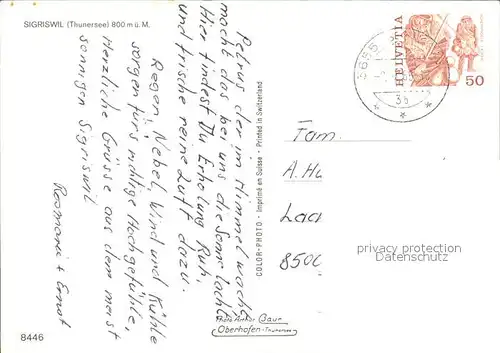 SIGRISWIL (Thunersee) 800 m ü. M.
Petrus der im Himmel wacht
macht das bei uns die Sonne lacht
Hier findest Du Erholung Ruh,
und frische reine Luft dazu.
Regen, Nebel, Wind und Kühle
sorgen fürs richtige Hochgefühle,
Herzliche Grüsse aus dem meist
sonnigen Sigriswil
Rosmarie + Ernst
8446
COLOR-PHOTO - Imprimé en Suisse - Printed in Switzerland
Gaur
Oberhofen-Thunersee
HELVETIA
50
3655
Fam.
A. Hu
Laa
8500
privacy protection
Datenschutz